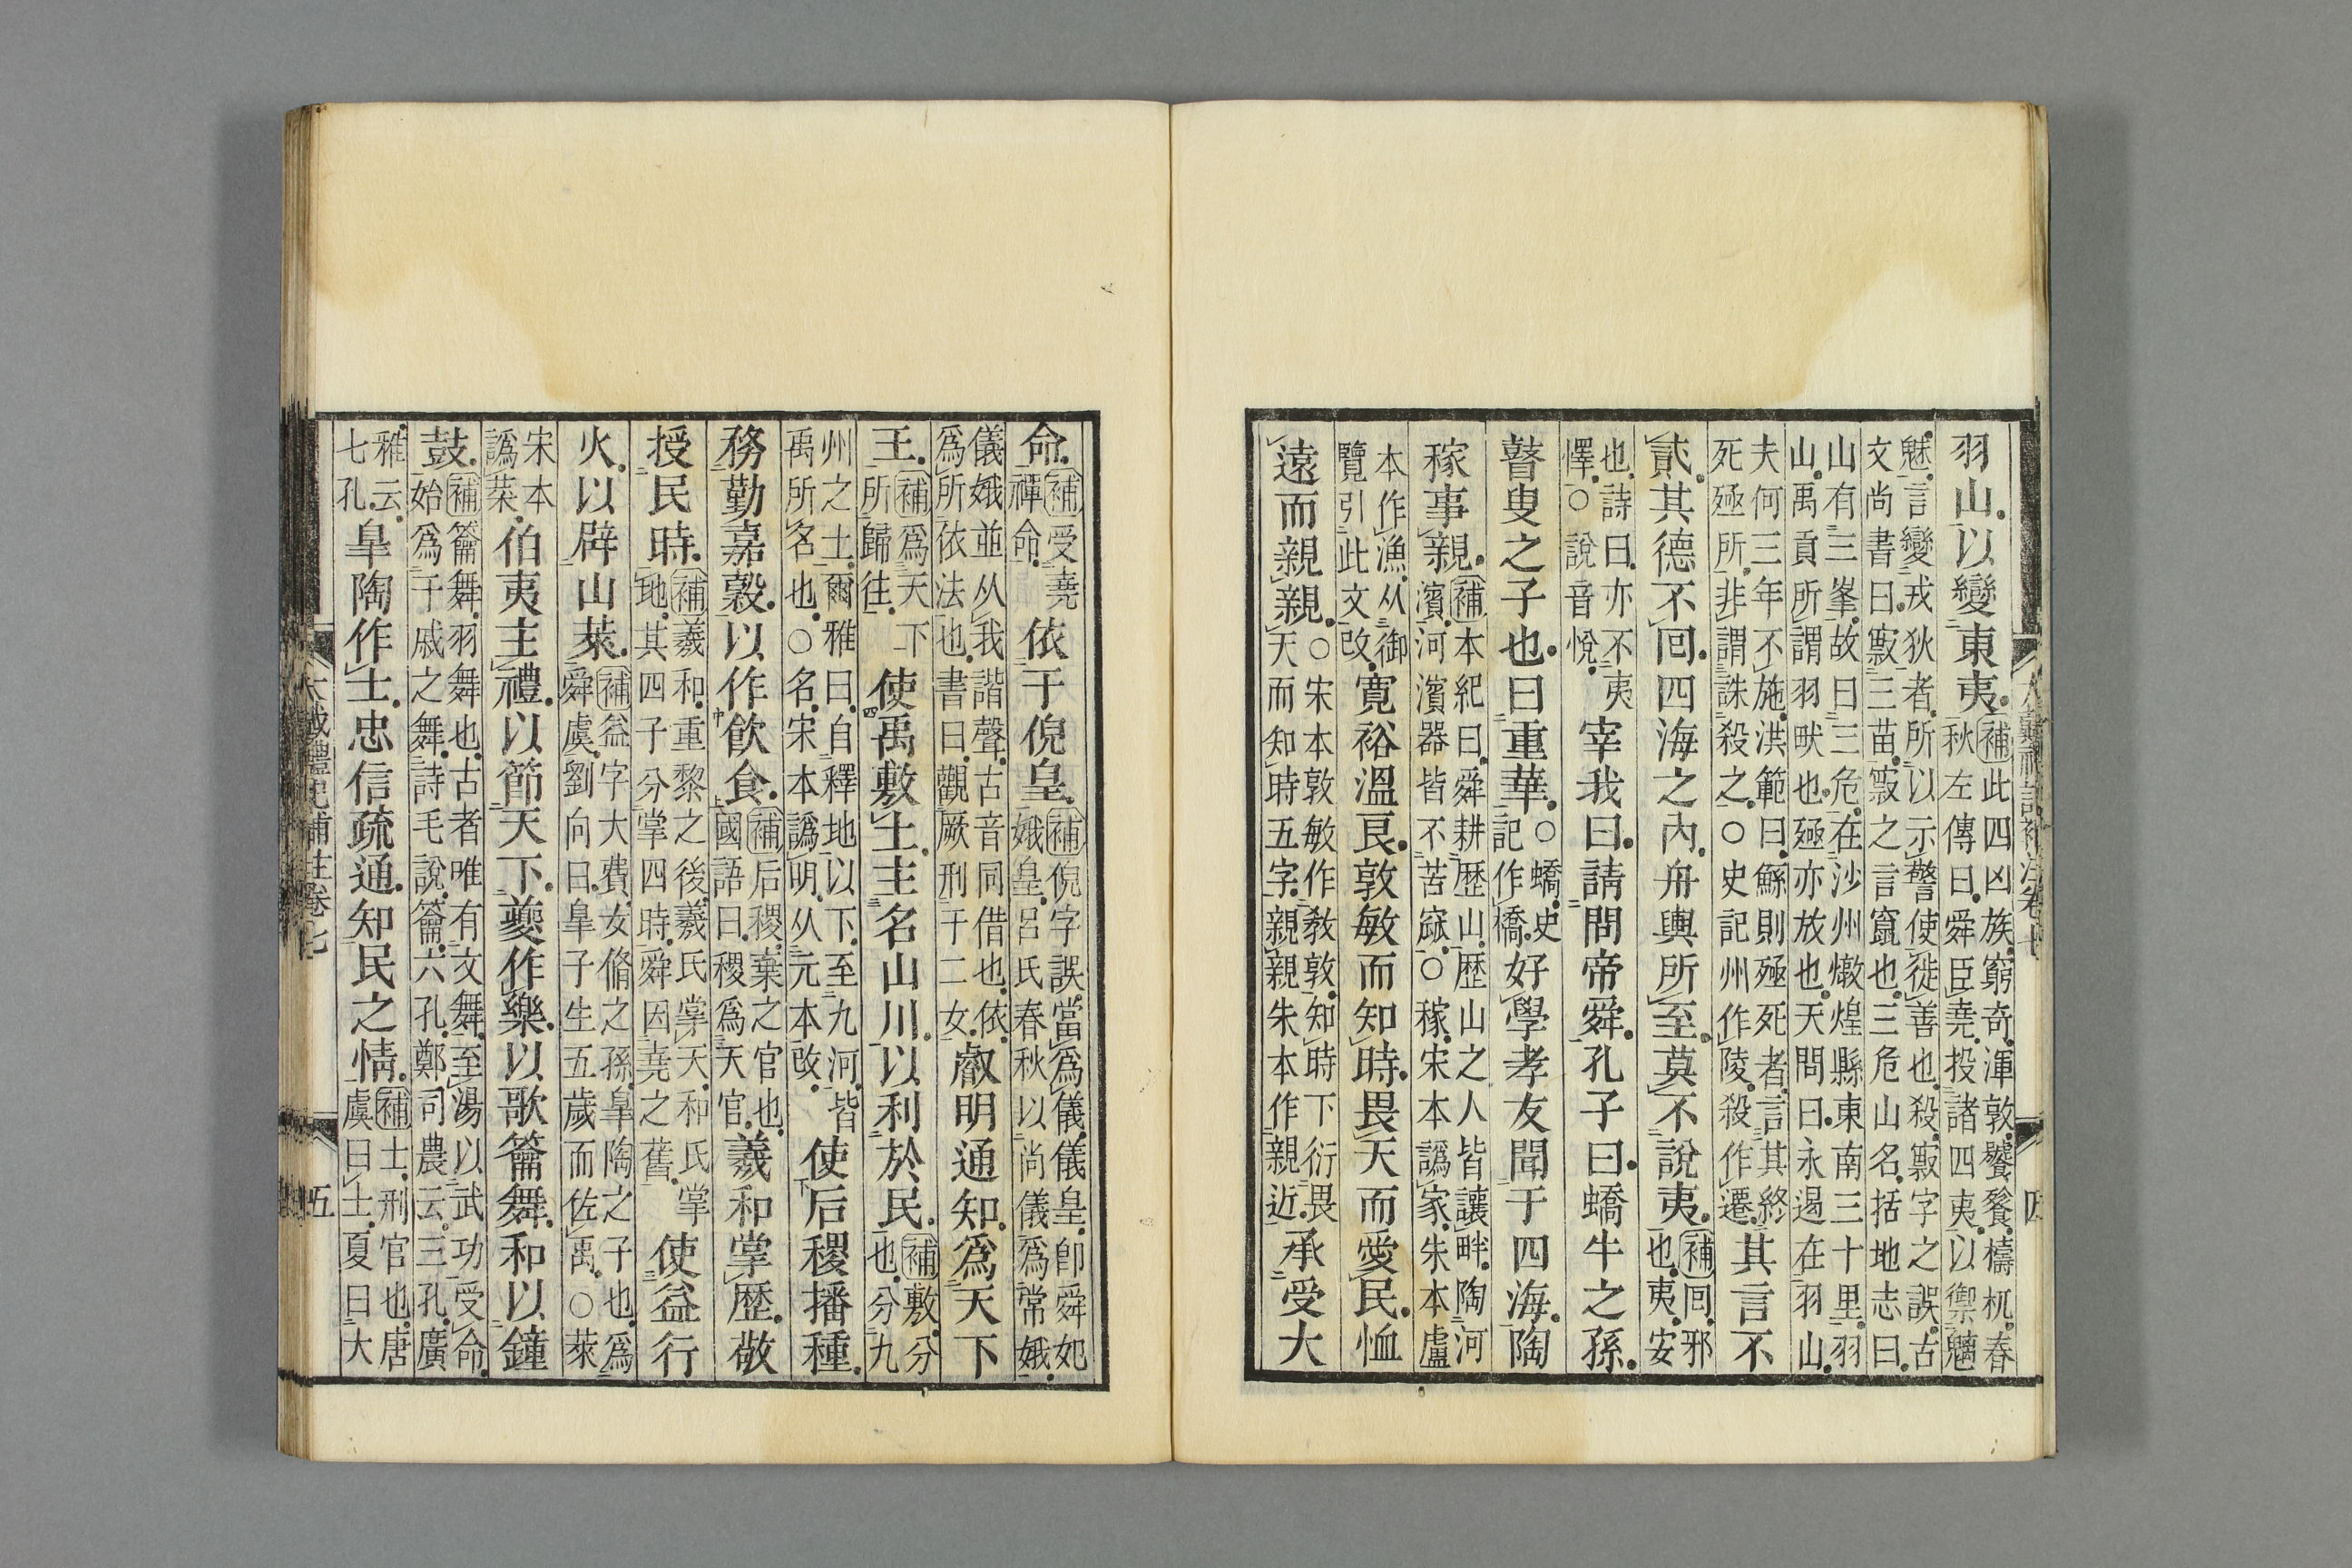 羽山以變東夷補此四凶族窮奇渾敦饕餮檮杌春
秋左傳曰舜臣堯投諸四夷以禦魑
魅言變戎狄者所以示警使徙善也殺㝮字之誤古
文尚書曰㝮三苗㝮之言竄也三危山名括地志曰
山有三峯故曰三危在沙州燉煌縣東南三十里羽
山禹貢所謂羽畎也殛亦放也天問曰永遏在羽山
夫何三年不施洪範曰鯀則殛死者言其終
死殛所非謂誅殺之○史記州作陵殺作遷其言不
貳其德不回四海之內舟輿所至莫不說夷補回邪
也夷安
也詩曰亦不夷
懌○說音悅宰我曰請問帝舜孔子曰蟜牛之孫
瞽叟之子也曰重華○蟜史
記作橋好學孝友聞于四海陶
稼事親補本紀曰舜耕歷山歷山之人皆讓畔陶河
濱河濱器皆不苦窳○稼宋本譌家朱本盧
本作漁从御
覽引此文改寬裕溫良敦敏而知時畏天而愛民恤
遠而親親○宋本敦敏作敎敦知時下衍畏
天而知時五字親親朱本作親近承受大
大戴禮記補注卷七 四
命補受堯
禪命依于倪皇補倪字誤當爲儀儀皇卽舜妃
娥皇呂氏春秋以尚儀爲常娥
儀娥並从我諧聲古音同借也依
爲所依法也書曰觀厥刑于二女叡明通知爲天下
王補爲天下
所歸往使禹敷土主名山川以利於民補敷分
也分九
州之土爾雅曰自釋地以下至九河皆
禹所名也○名宋本譌明从元本改使后稷播種
務勤嘉穀以作飮食補后稷棄之官也
國語曰稷爲天官羲和掌歷敬
授民時補羲和重黎之後羲氏掌天和氏掌
地其四子分掌四時舜因堯之舊使益行
火以辟山萊補益字大費女脩之孫皐陶之子也爲
舜虞劉向曰皐子生五歲而佐禹○萊
宋本
譌菜伯夷主禮以節天下夔作樂以歌籥舞和以鐘
鼓補籥舞羽舞也古者唯有文舞至湯以武功受命
始爲干戚之舞詩毛說籥六孔鄭司農云三孔廣
雅云
七孔皐陶作士忠信疏通知民之情補士刑官也唐
虞曰士夏曰大
大戴禮記補注卷七 五